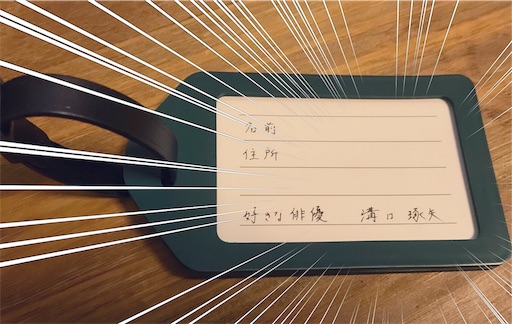 名前
住所
好きな俳優　溝口琢矢